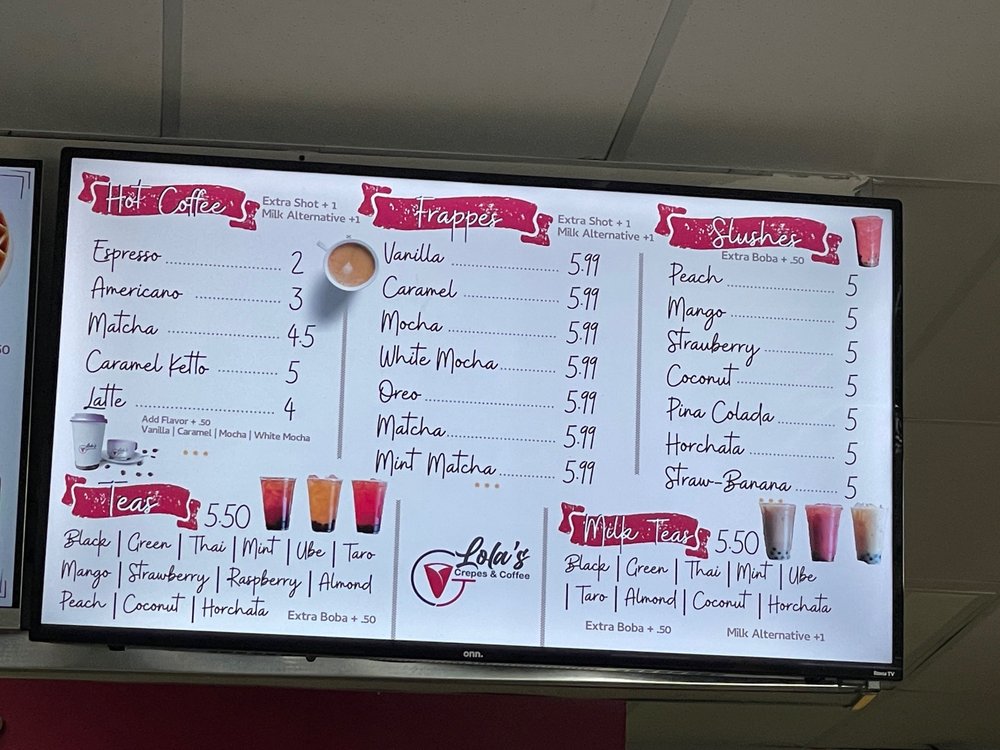 Hot Coffee
Extra Shot + 1
Milk Alternative +1
Espresso 2
Americano 3
Matcha 4.5
Caramel Ketto 5
Latte 4
Add Flavor + .50
Vanilla | Caramel | Mocha | White Mocha
Frappes
Extra Shot + 1
Milk Alternative +1
Vanilla 5.99
Caramel 5.99
Mocha 5.99
White Mocha 5.99
Oreo 5.99
Matcha 5.99
Mint Matcha 5.99
Slushes
Extra Boba + .50
Peach 5
Mango 5
Strauberry 5
Coconut 5
Pina Colada 5
Horchata 5
Straw-Banana 5
Teas 5.50
Black | Green | Thai | Mint | Ube | Taro
Mango | Strawberry | Raspberry | Almond
Peach | Coconut | Horchata
Extra Boba + .50
Lola's
Crepes & Coffee
Milk Teas 5.50
Black | Green | Thai | Mint | Ube
| Taro | Almond | Coconut | Horchata
Extra Boba + .50
Milk Alternative +1
onn.
Roku TV